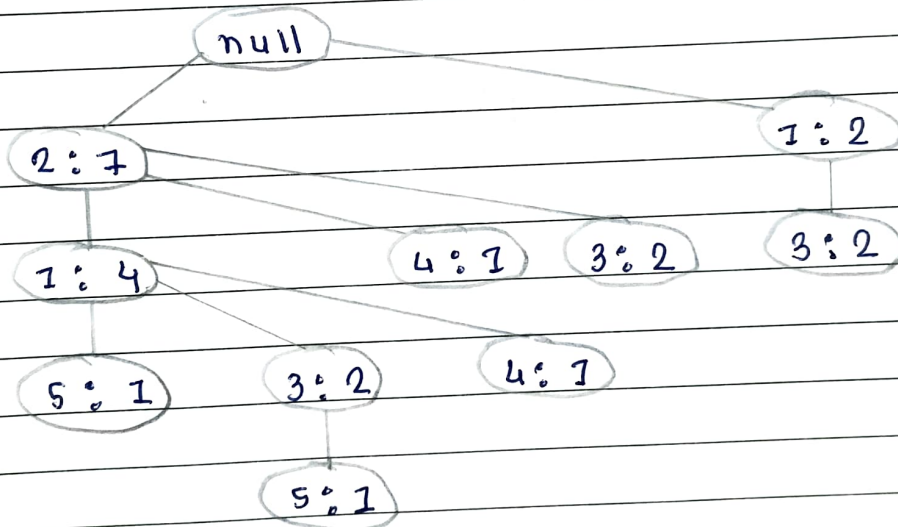 null
2:7
1:2
1:4
4:1
3:2
3:2
5:1
3:2
4:1
5:1